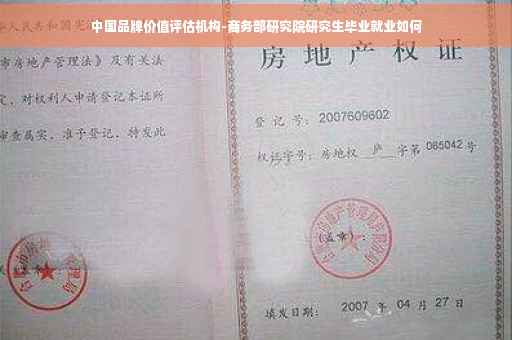 中国品牌价值评估机构-商务部研究院研究生毕业就业如何
人民共和国宪
市房地产管理法》及有关法
定，对权利人申请登记本证所
审查属实，准予登记，特发此
房地产权证
登记号：2007609602
权证字号：房地权 庐 字第 085042 号
(盖章)：
填发日期：2007 年 04 月 27 日